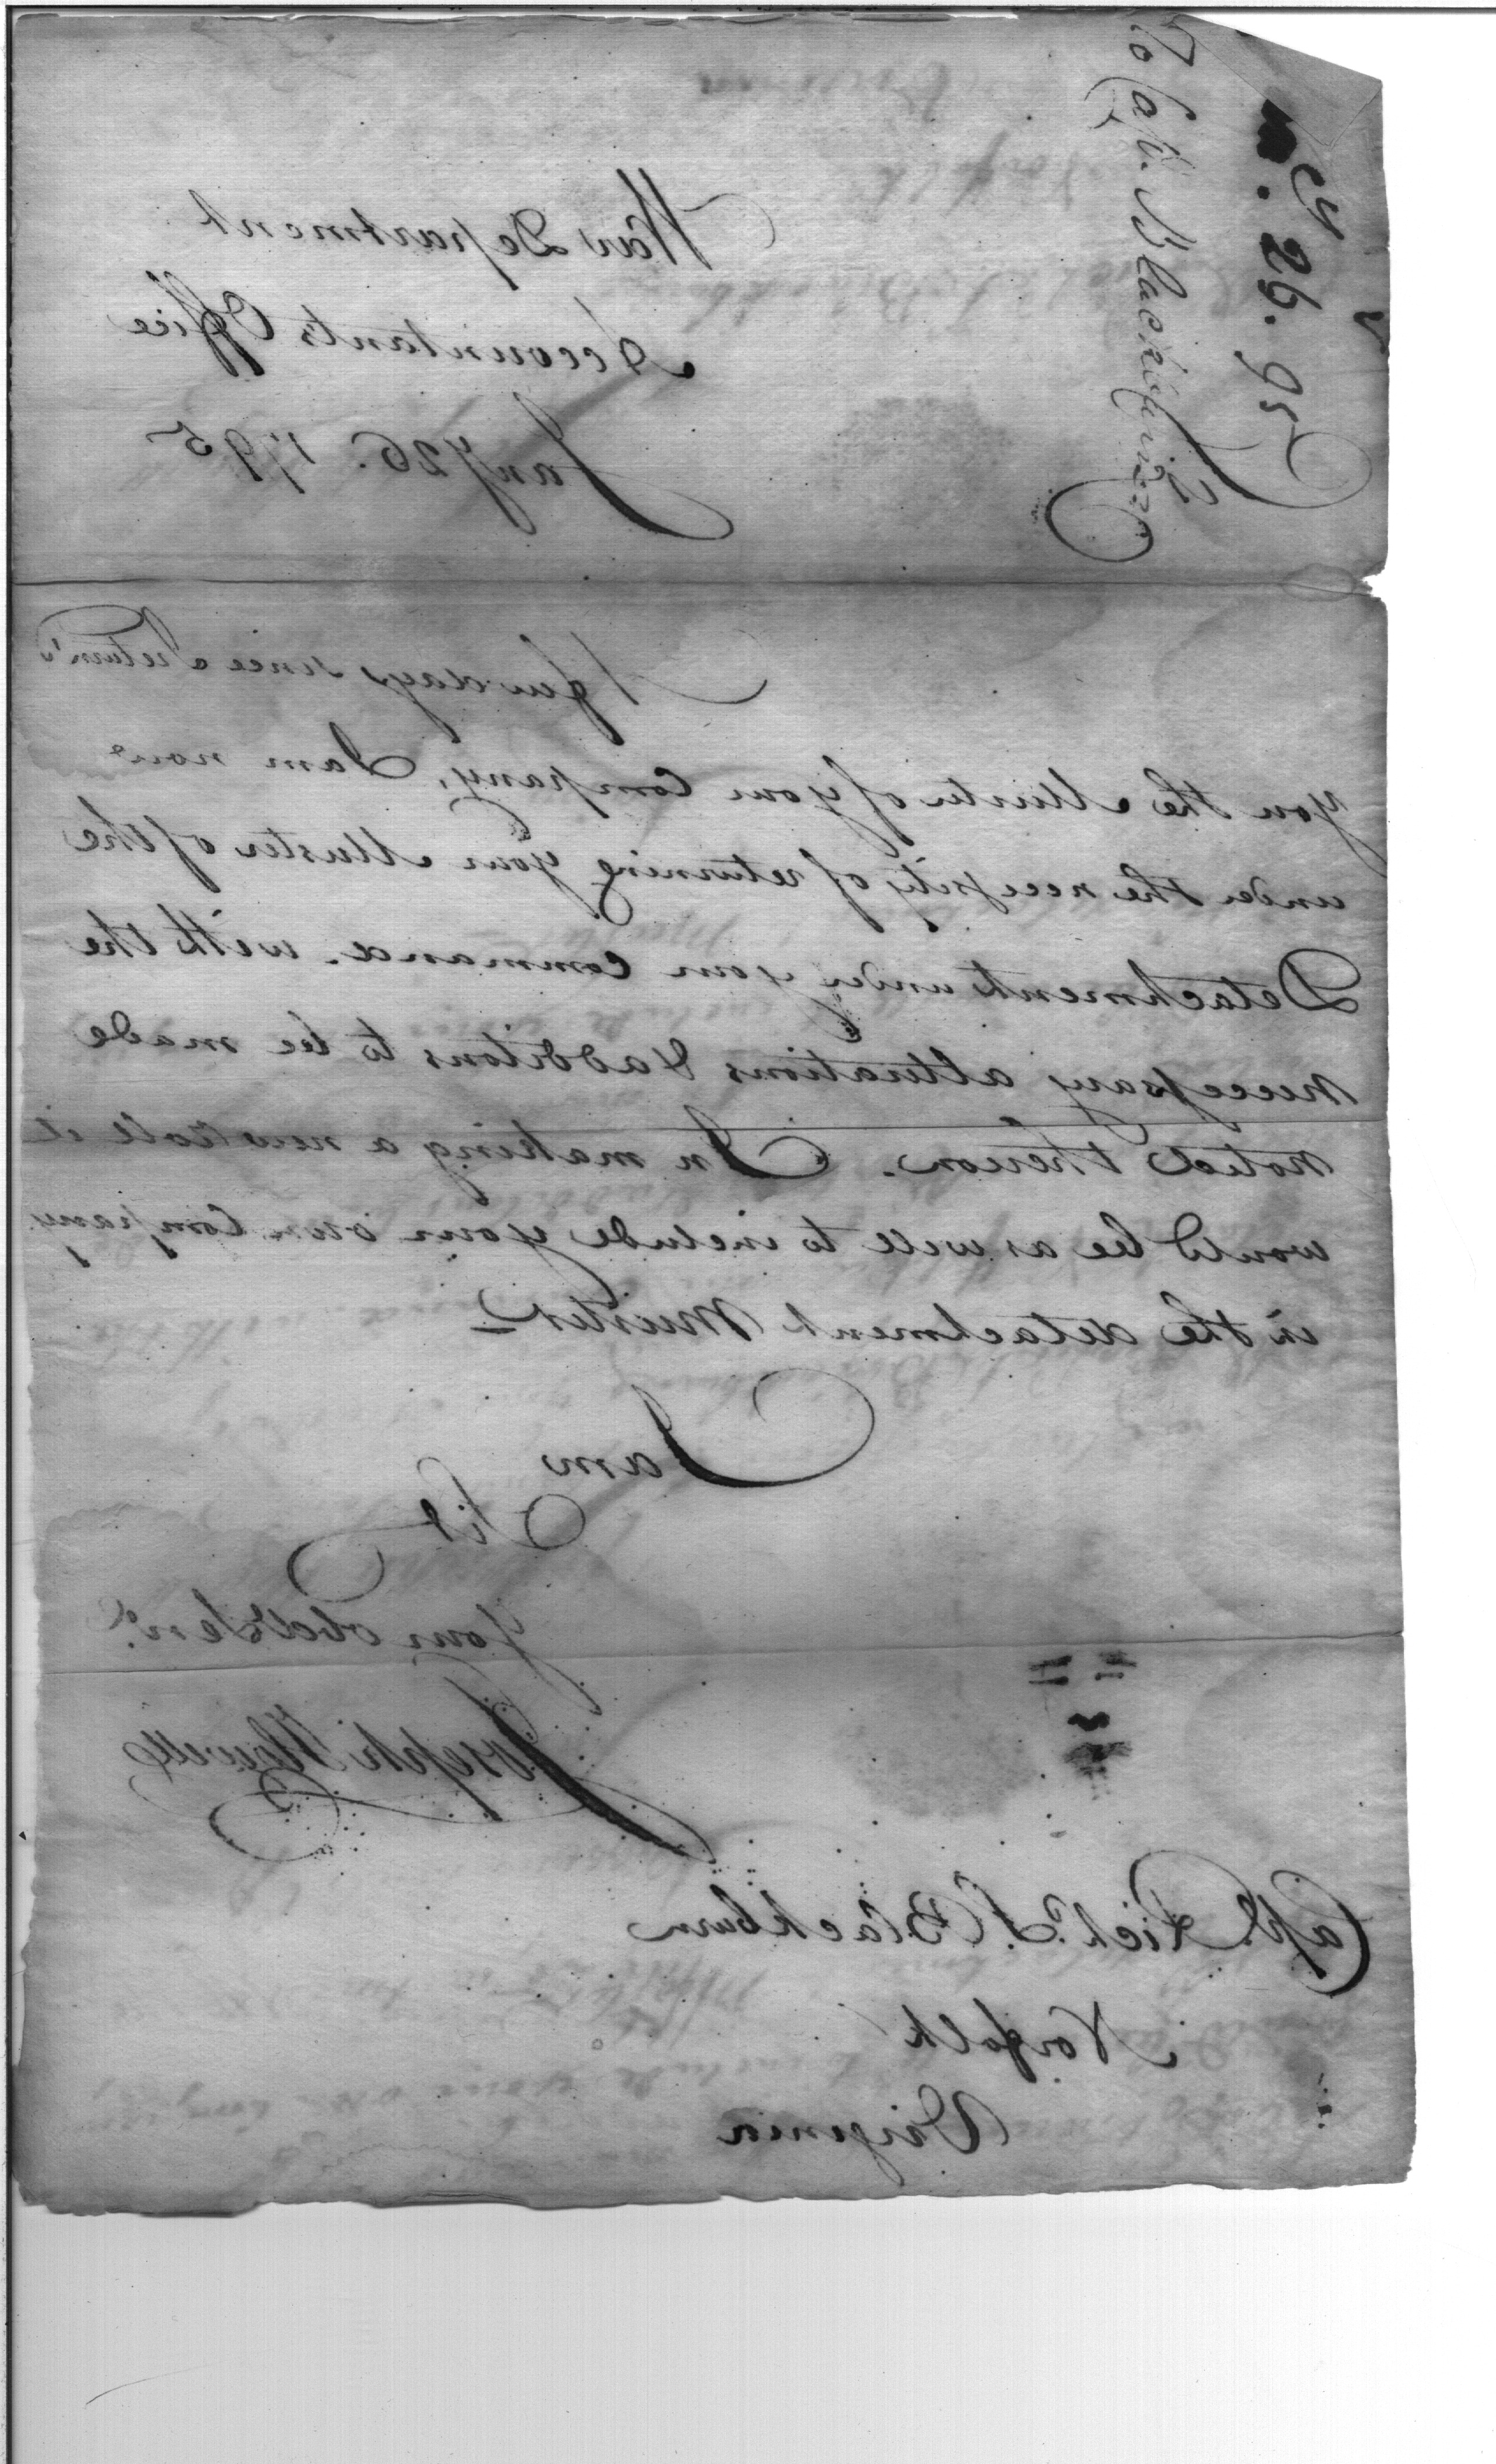 To Capt. Blackburn
26. 95
War Department
Accountants Office
Jany 26. 1795
A few days since I return'd
you the Muster of your Company, I am now
under the necessity of returning your Muster of the
Detachment under your command. with the
necessary alterations & additons to be made
noted thereon. In making a new Roll it
would be as well to include your own Company
in the detachment Muster
I am
Sir
Your obedt Servt.
Joseph Howell
Capt. Richd. S. Blackburn
Norfolk
Virginia